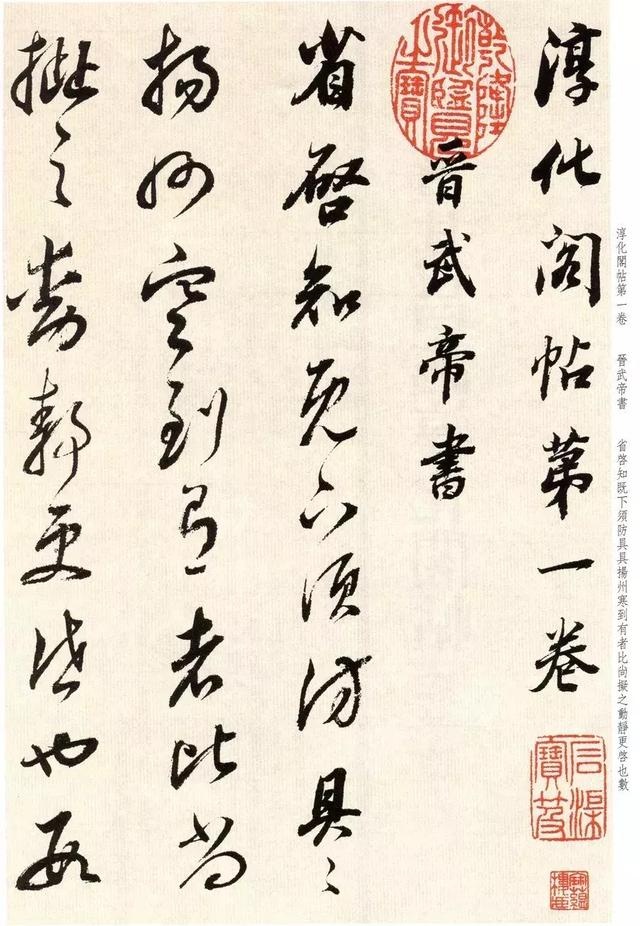 淳化閣帖第一卷 晉武帝書 省啓知既下須防具具揚州寒到有者比尚擬之動靜更啓也數
淳化閣帖第一卷
石渠寶笈
乾隆御覽之寶
晉武帝書
省啓知既下須防具〻
揚州寒到有者比尚
擬之動靜更啓也數